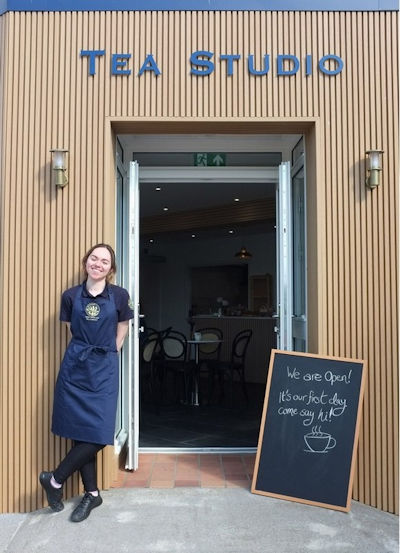 TEA STUDIO
We are Open!
It's our first day
come say hi!